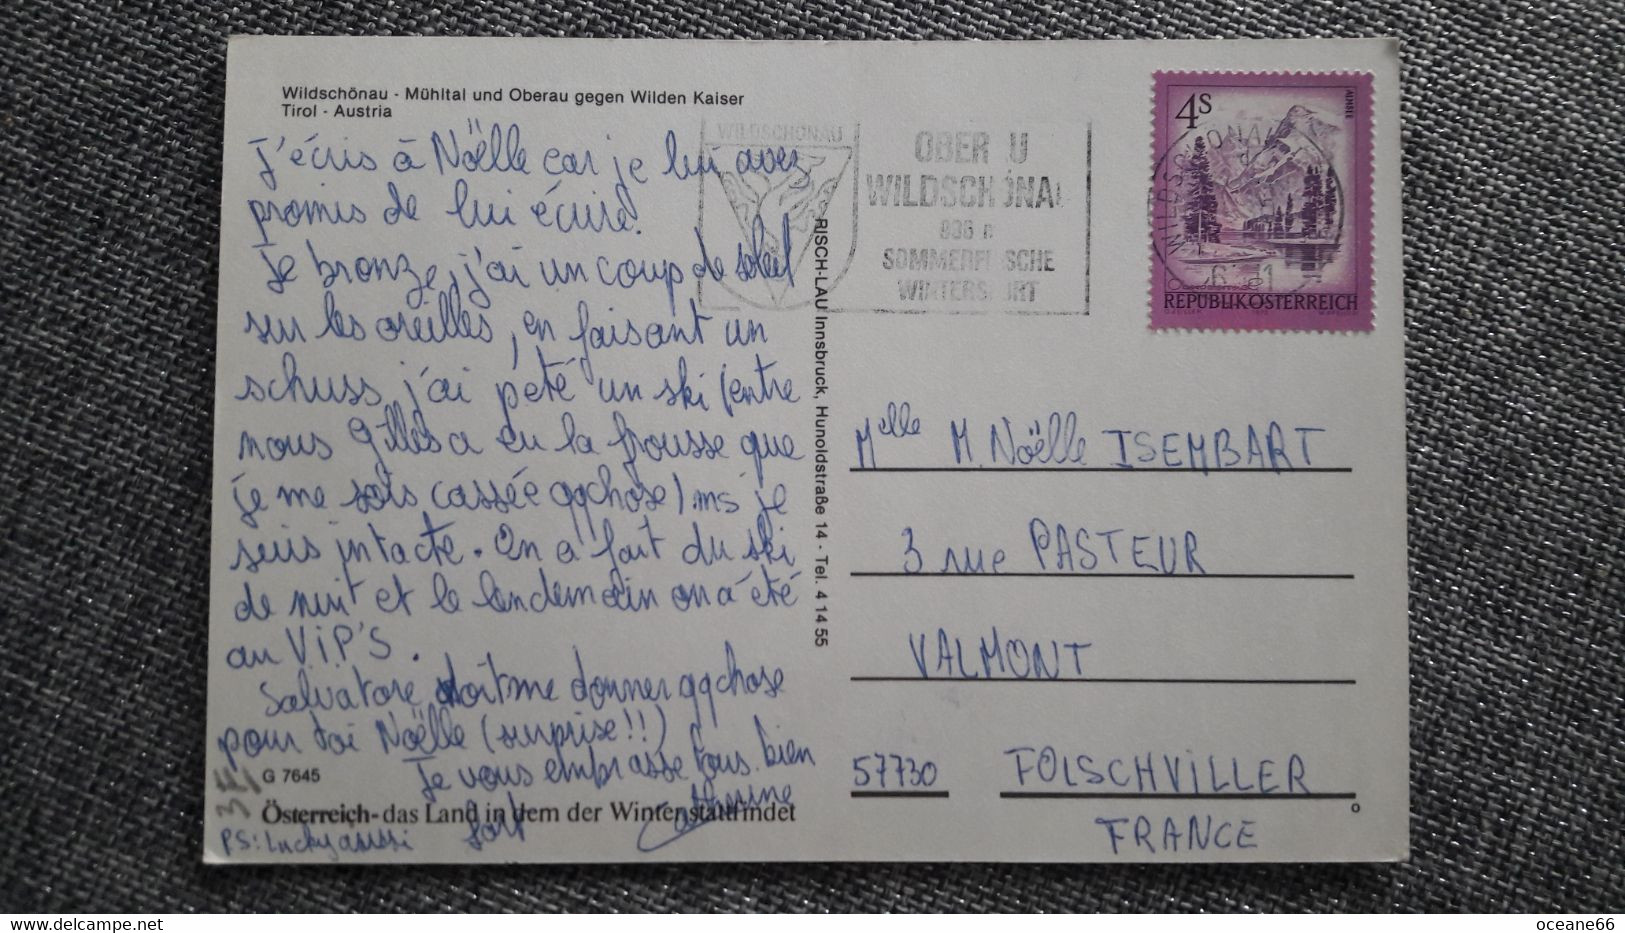 Wildschönau - Mühltal und Oberau gegen Wilden Kaiser
Tirol - Austria
J'écris à Noëlle car je lui avez
promis de lui écrire!
Je bronze, j'ai un coup de soleil
sur les oreilles, en faisant un
schuss j'ai pété un ski (entre
nous Gilles a eu la frousse que
je me sois cassée qqchose) ms je
suis intacte. On a fait du ski
de nuit et le lendemain on a été
au V.i.P'S.
Salvatore doit me donner qqchose
pour toi Noëlle (surprise!!)
Je vous embrasse tous bien
fort
PS: Lucky aussi
G 7645
Österreich - das Land in dem der Winter stattfindet
RISCH-LAU, Innsbruck, Hunoldstraße 14 - Tel. 4 14 55
WILDSCHÖNAU
OBER U
WILDSCHÖNAU
SOMMERFRISCHE
WINTERSPORT
4S
ALMSEE
REPUBLIK ÖSTERREICH
WILDSCHÖNAU
Melle M. Noëlle ISEMBART
3 rue PASTEUR
VALMONT
57730 FOLSCHVILLER
FRANCE
oceane66